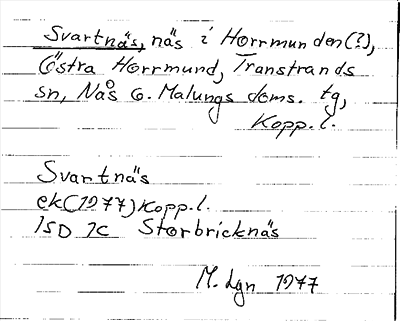 Svartnäs, näs i Horrmunden(?),
Östra Horrmund, Transtrands
sn, Nås o. Malungs doms. tg,
Kopp.l.
Svartnäs
ek(1977)Kopp.l.
15D 1c Storbricknäs
M. Lgn 1977